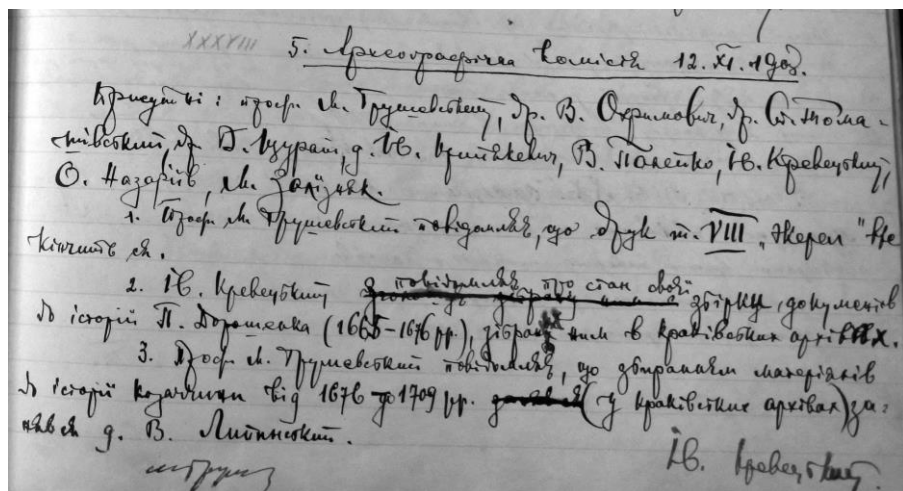 XXXVIII 5. Археографічна Комісія 12. XI. 1907.
Присутні: проф. М. Грушевський, др. В. Охримович, др. Ст. Тома-
шівський, др. В. Щурат, д. Ів. Кри́пякевич, В. Панейко, Ів. Кревецький,
О. Назаріїв, М. Залізняк.
1. Проф. М. Грушевський повідомляє, що друк т. VIII „Жерел" вже
кінчить ся.
2. Ів. Кревецький повідомляє про стан своєї збірки, документів
до історії П. Дорошенка (1665–1676 рр.), зібраних ним в краківських архівах.
3. Проф. М. Грушевський повідомляє, що збиранням матеріялів
до історії козаччини від 1676 до 1709 рр. (у краківських архівах) за-
няв ся д. В. Липинський.
М Груш
Ів. Кревецький.